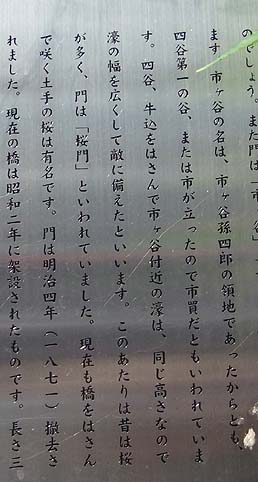 のでしょう。また門は「市
ます　市ヶ谷の名は、市ヶ谷孫四郎の領地であったからとも
四谷第一の谷、または市が立ったので市買だともいわれていま
す。四谷、牛込をはさんで市ヶ谷付近の濠は、同じ高さなので
濠の幅を広くして敵に備えたといいます。このあたりは昔は桜
が多く、門は「桜門」といわれていました。現在も橋をはさん
で咲く土手の桜は有名です。門は明治四年（一八七一）撤去さ
れました。現在の橋は昭和二年に架設されたものです。長さ三